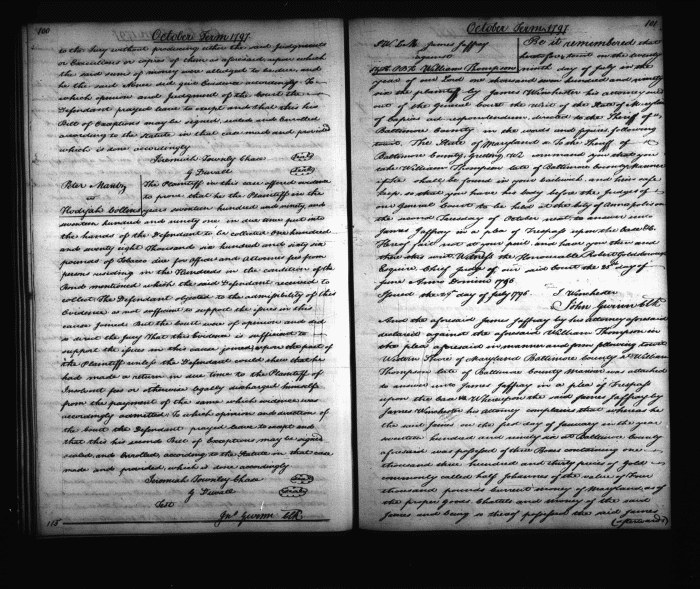 100
October Term 1797
to the Jury without producing either the said Judgments
or Executions or copies of them as aforesaid upon which
the said sums of money were alledged to be due and
he the said did give Evidence accordingly. To
which opinion and Judgment of the Court the
Defendant prayed leave to except and that this his
Bill of Exceptions may be signed sealed and enrolled
according to the Statute in that case made and provided
which is done accordingly
Jeremiah Townly Chase (Seal)
G Duvall (Seal)
Peter Manby
vs
The Plaintiff in this case offered evidence
to prove that he the Plaintiff in the
years seventeen hundred and ninety and
seventeen hundred and ninety one in due time put into
the hands of the Defendant to be collected One hundred
and seventy eight Thousand six hundred and sixty six
pounds of Tobacco due for officers and Attornies fees from
persons residing in the Hundreds in the condition of the
Bond mentioned which the said Defendant received to
collect The Defendant objected to the admissibility of this
Evidence as not sufficient to support the issues in this
cause Joined But the Court were of opinion and did
so direct the Jury That this Evidence is sufficient to
support the issues in this cause joined upon the part of
the Plaintiff unless the Defendant could shew that he
had made a return in due time to the Plaintiff of
Insolvent fees or otherwise legally discharged himself
from the payment of the same which evidence was
accordingly admitted To which opinion and direction of
the Court the Defendant prayed leave to except and
that this his second Bill of Exceptions may be signed
sealed and enrolled, according to the Statute in that case
made and provided, which is done accordingly
Jeremiah Townly Chase (Seal)
G Duvall (Seal)
Test
Jno Gwinn Clk
115
101
October Term 1797
James Jaffray
against
William Thompson
Be it remembered that
heretofore to wit on the
day of July in the
year of our Lord one thousand seven hundred and ninety
six the plaintiff by James Winchester his attorney sued
out of the General Court the writ of the State of Maryland
of Capias ad respondendum directed to the Sheriff of
Baltimore County in the words and figures following
towit, The State of Maryland To the Sheriff of
Baltimore County, Greeting We command you that you
take William Thompson late of Baltimore County
if he shall be found in your bailiwick and him safe
keep so that you have his body before the Judges of
our general Court to be held at the City of Annapolis on
the second Tuesday of October next to answer unto
James Jaffray in a plea of Trespass upon the case &c
Hereof fail not at your peril and have you then and
there this writ Witness the Honourable Robert Goldsborough
Esquire Chief Judge of our said Court the day of
June Anno Domini 1796
Issued the day of July 1796 J Winchester
John Gwinn Clk
And the aforesaid James Jaffray by his attorney aforesaid
declared against the aforesaid William Thompson in
the plea aforesaid in manner and form following towit
Western Shore of Maryland Baltimore County William
Thompson late of Baltimore County was attached
to answer unto James Jaffray in a plea of Trespass
upon the case &c Whereupon the said James Jaffray by
James Winchester his attorney complains that whereas he
the said James on the first day of January in the year
seventeen hundred and ninety six at Baltimore County
aforesaid was possessed of three Boxes containing one
thousand three hundred and thirty pieces of Gold
commonly called half Johannes of the value of Four
thousand pounds current money of Maryland, as of
the proper Goods Chattels and money of the said
James and being so thereof possessed the said James
(afterwards)